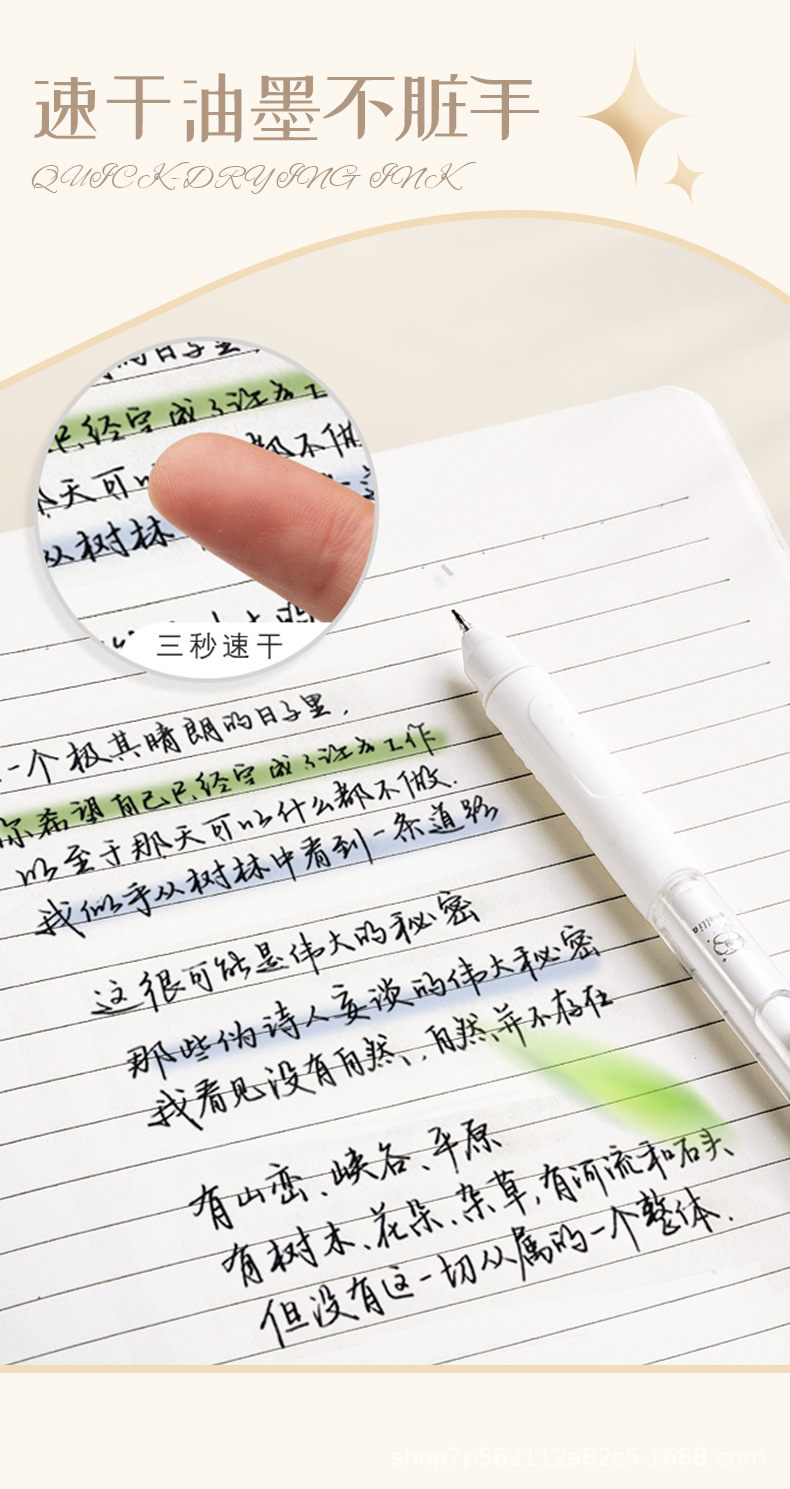 速干油墨不脏手
QUICK-DRYING INK
的日子里
已经完成了许多工
天可以 都不做
从树林
三秒速干
一个极其晴朗的日子里，
你希望自己已经完成了许多工作
以至于那天可以什么都不做.
我似乎从树林中看到一条道路
这很可能是伟大的秘密
那些伪诗人妄谈的伟大秘密
我看见没有自然、自然并不存在
有山峦、峡谷、平原
有树木、花朵、杂草,有河流和石头、
但没有这一切从属的一个整体.
shop7p562112a82c5.1688.com